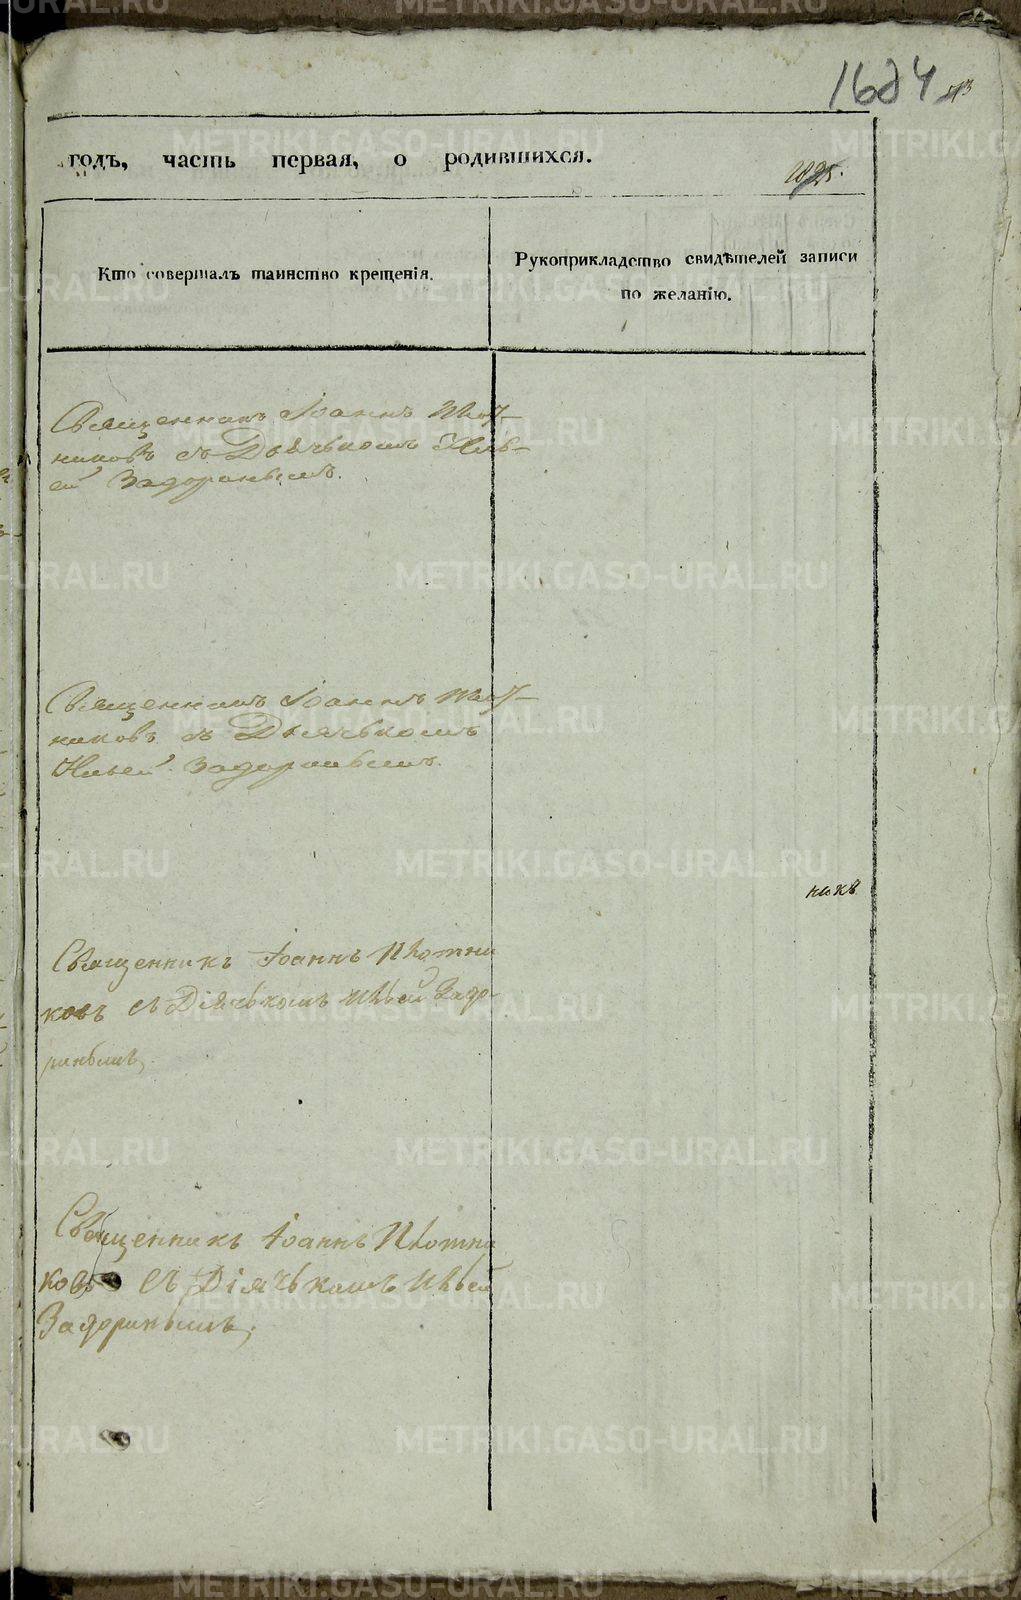 годъ, часть первая, о родившихся.
Кто совершалъ таинство крещенія.
Рукоприкладство свидѣтелей записи
по желанію.
Священникъ Іоаннъ Плот-
никовъ съ Дьячькомъ Иль-
ей Задоринымъ.
Священникъ Іоаннъ Плот-
никовъ съ Дьячькомъ
Ильей Задоринымъ.
Священникъ Іоаннъ Плотни
ковъ съ Діячькомъ Ильей Задо-
ринымъ,
Священникъ Іоаннъ Плотни
ковъ съ Діячькомъ Ильей
Задоринымъ,
METRIKI.GASO-URAL.RU